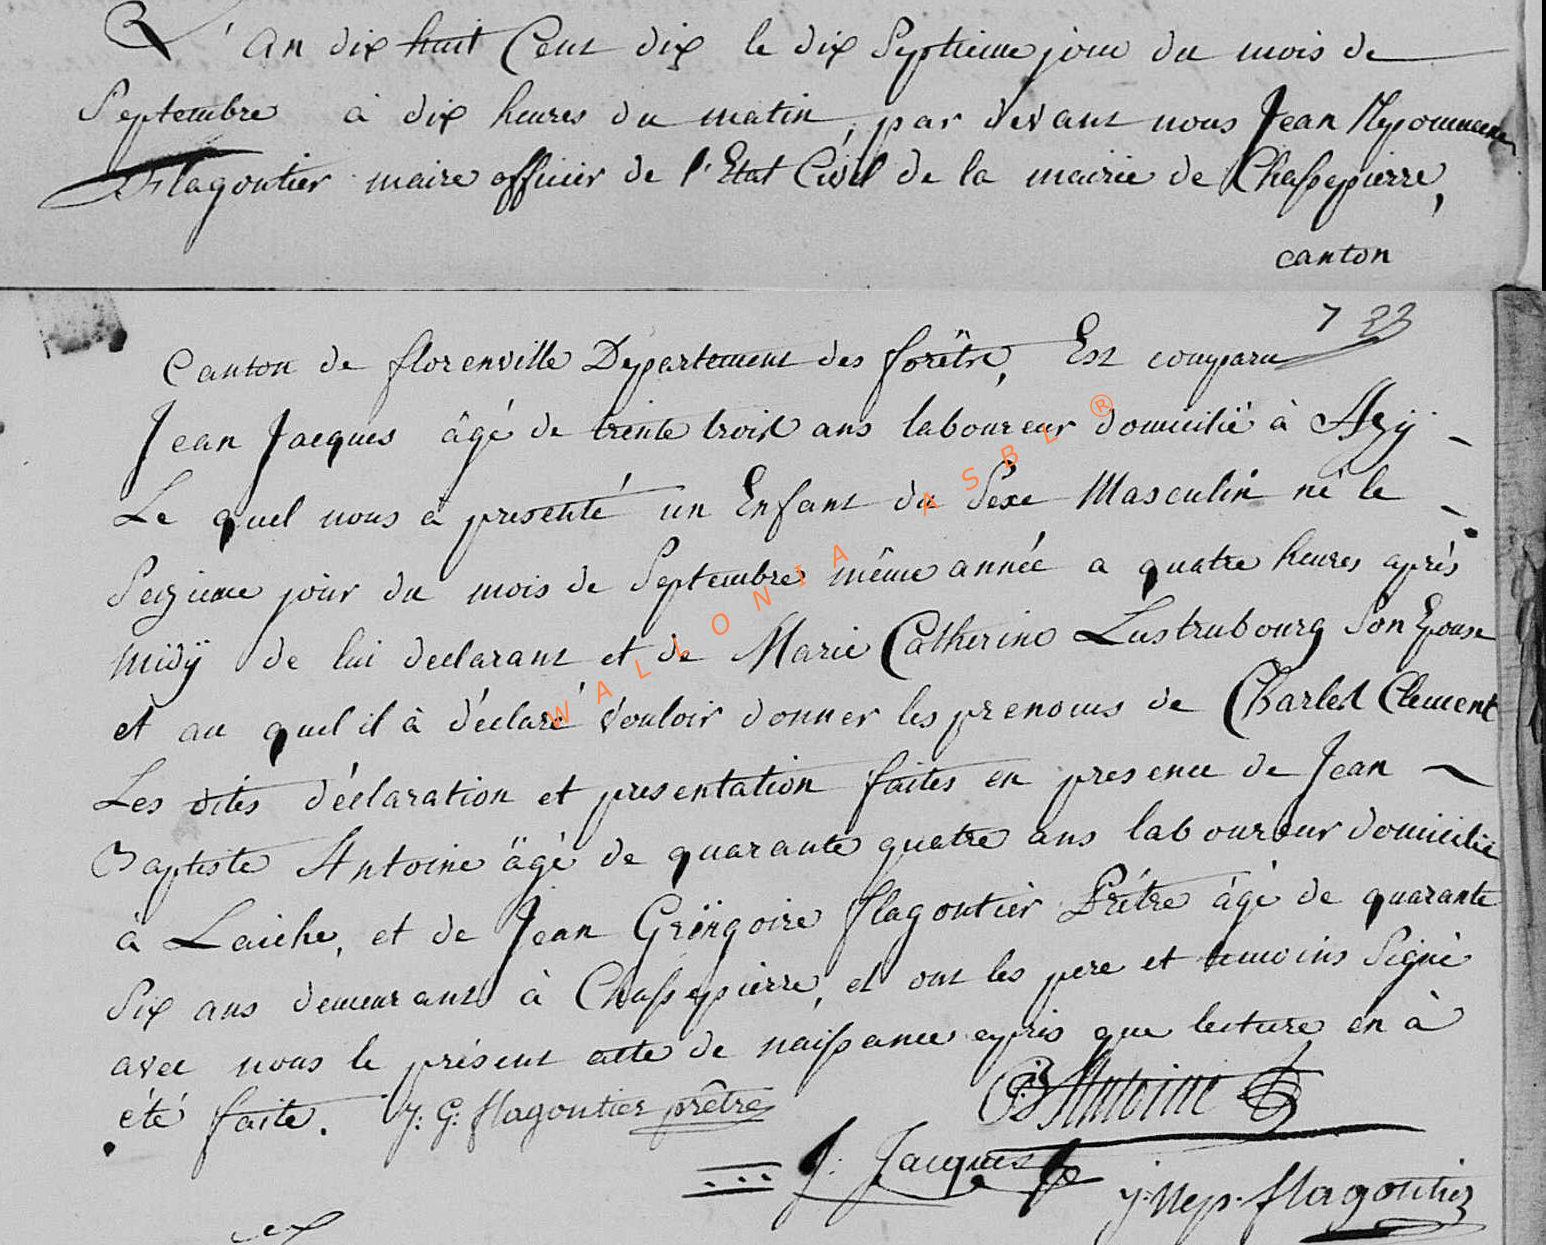 L'an dix huit Cent dix le dix Septieme jour du mois de
Septembre à dix heures du matin, par devant nous Jean Nepomucene
Flagontier maire officier de l'Etat Civil de la mairie de Chassepierre,
canton
7 23
Canton de florenville Departement des forêtre, Est comparu
Jean Jacques âgé de trente trois ans laboureur domicilié à Azÿ -
Le quel nous à presenté un Enfant du Sexe Masculin né le -
Seizieme jour du mois de Septembre même année a quatre heures après
Midÿ de lui declarant et de Marie Catherine Lustrubourg Son Epouse
et au quel il à déclaré vouloir donner les prenoms de Charles Clement
Les dites déclaration et presentation faites en presence de Jean
Baptiste Antoine âgé de quarante quatre ans laboureur domicilié
à Laiche, et de Jean Gréngoire flagontier Prêtre âgé de quarante
Six ans demeurant à Chassepierre, et ont les pere et temoins Signé
avec nous le présent acte de naissance après que lecture en à
été faite. J: G: flagontier prêtre
JB Antoine
J: Jacques
j: Nep. flagontier
WALLONIA ASBL ®